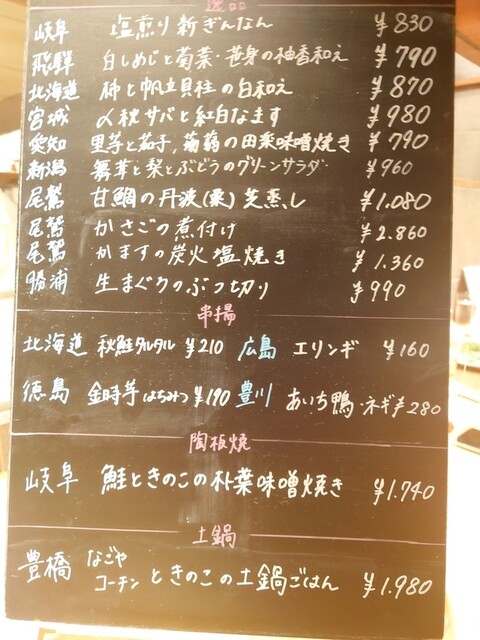 逸品
岐阜 塩煎り新ぎんなん ¥830
飛騨 白しめじと菊菜・笹身の柚香和え ¥790
北海道 柿と帆立貝柱の白和え ¥870
宮城 〆秋サバと紅白なます ¥980
愛知 里芋と茄子,蒟蒻の田楽味噌焼き ¥790
新潟 舞茸と梨とぶどうのグリーンサラダ ¥960
尾鷲 甘鯛の丹波(栗)芝蒸し ¥1.080
尾鷲 かさごの煮付け ¥2.860
尾鷲 かますの炭火塩焼き ¥1.360
勝浦 生まぐろのぶつ切り ¥990
串揚
北海道 秋鮭タルタル ¥210 広島 エリンギ ¥160
徳島 金時芋はちみつ ¥190 豊川 あいち鴨・ネギ ¥280
陶板焼
岐阜 鮭ときのこの朴葉味噌焼き ¥1.740
土鍋
豊橋 なごや
コーチンときのこの土鍋ごはん ¥1.980